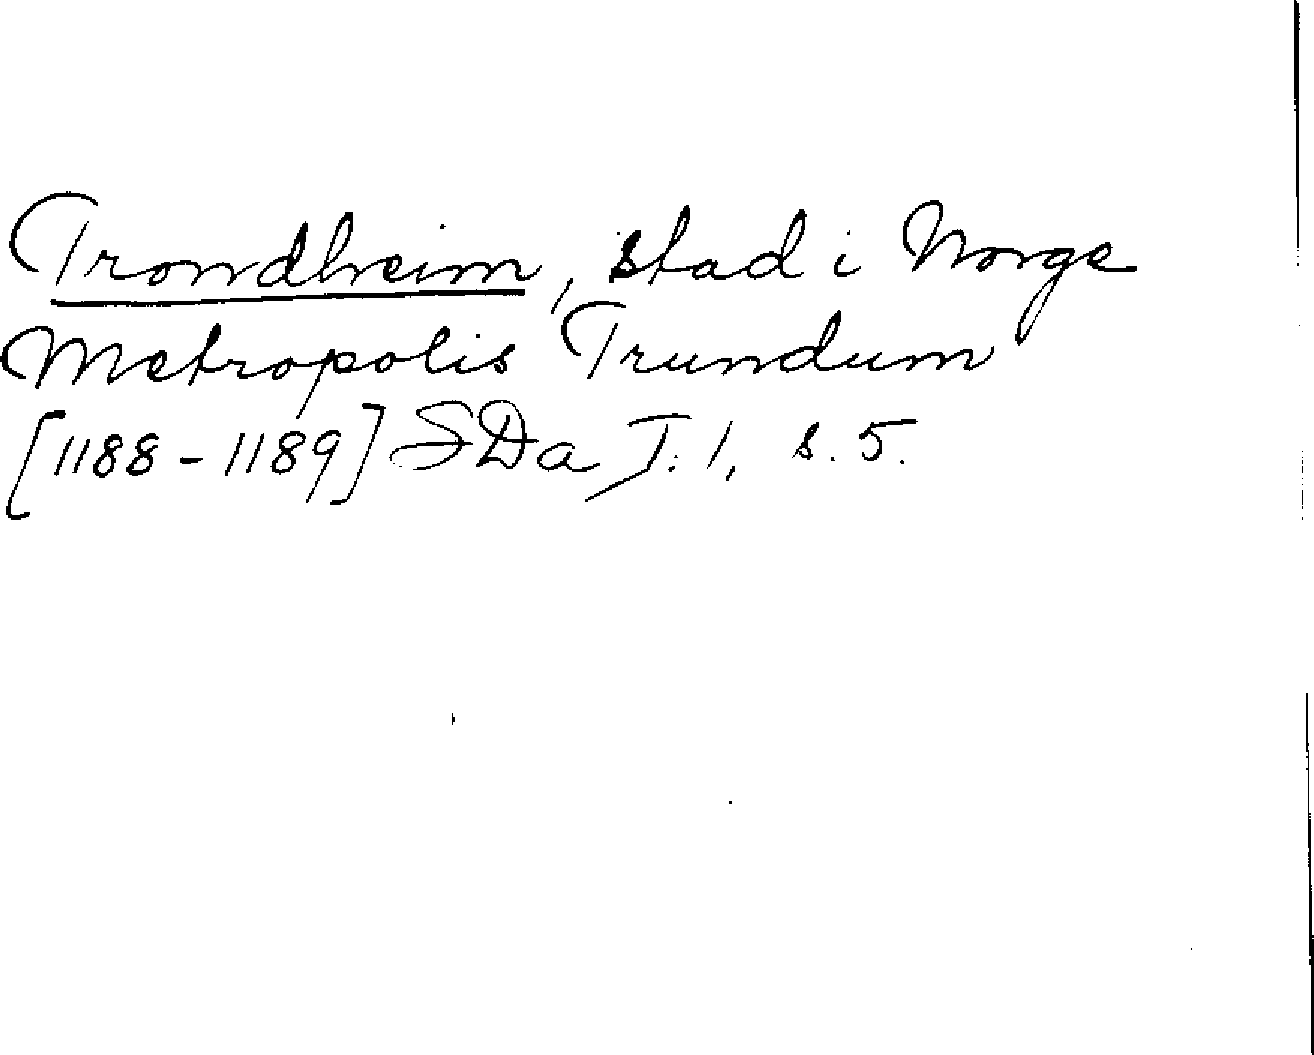 Trondheim, stad i Norge
Metropolis Trundum
[1188-1189] SDa T. 1, s. 5.